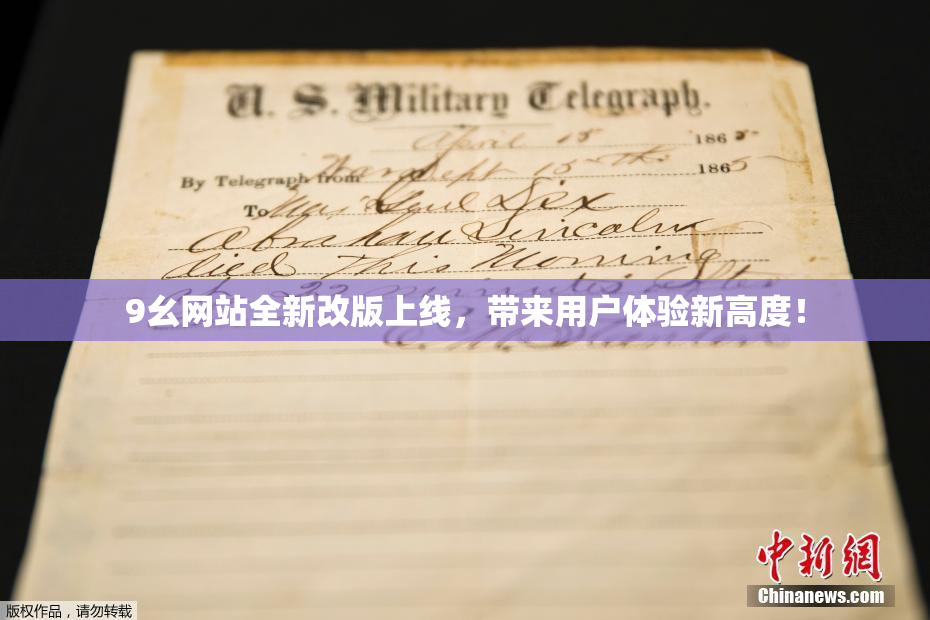 U. S. Military Telegraph.
April 15 1865
By Telegraph from War Dept 15th 1865
To Maj Genl Dix
Abraham Lincoln
died This Morning
at 22 minutes after
9幺网站全新改版上线，带来用户体验新高度！
E. M. Stanton
中新網
Chinanews.com
版权作品，请勿转载